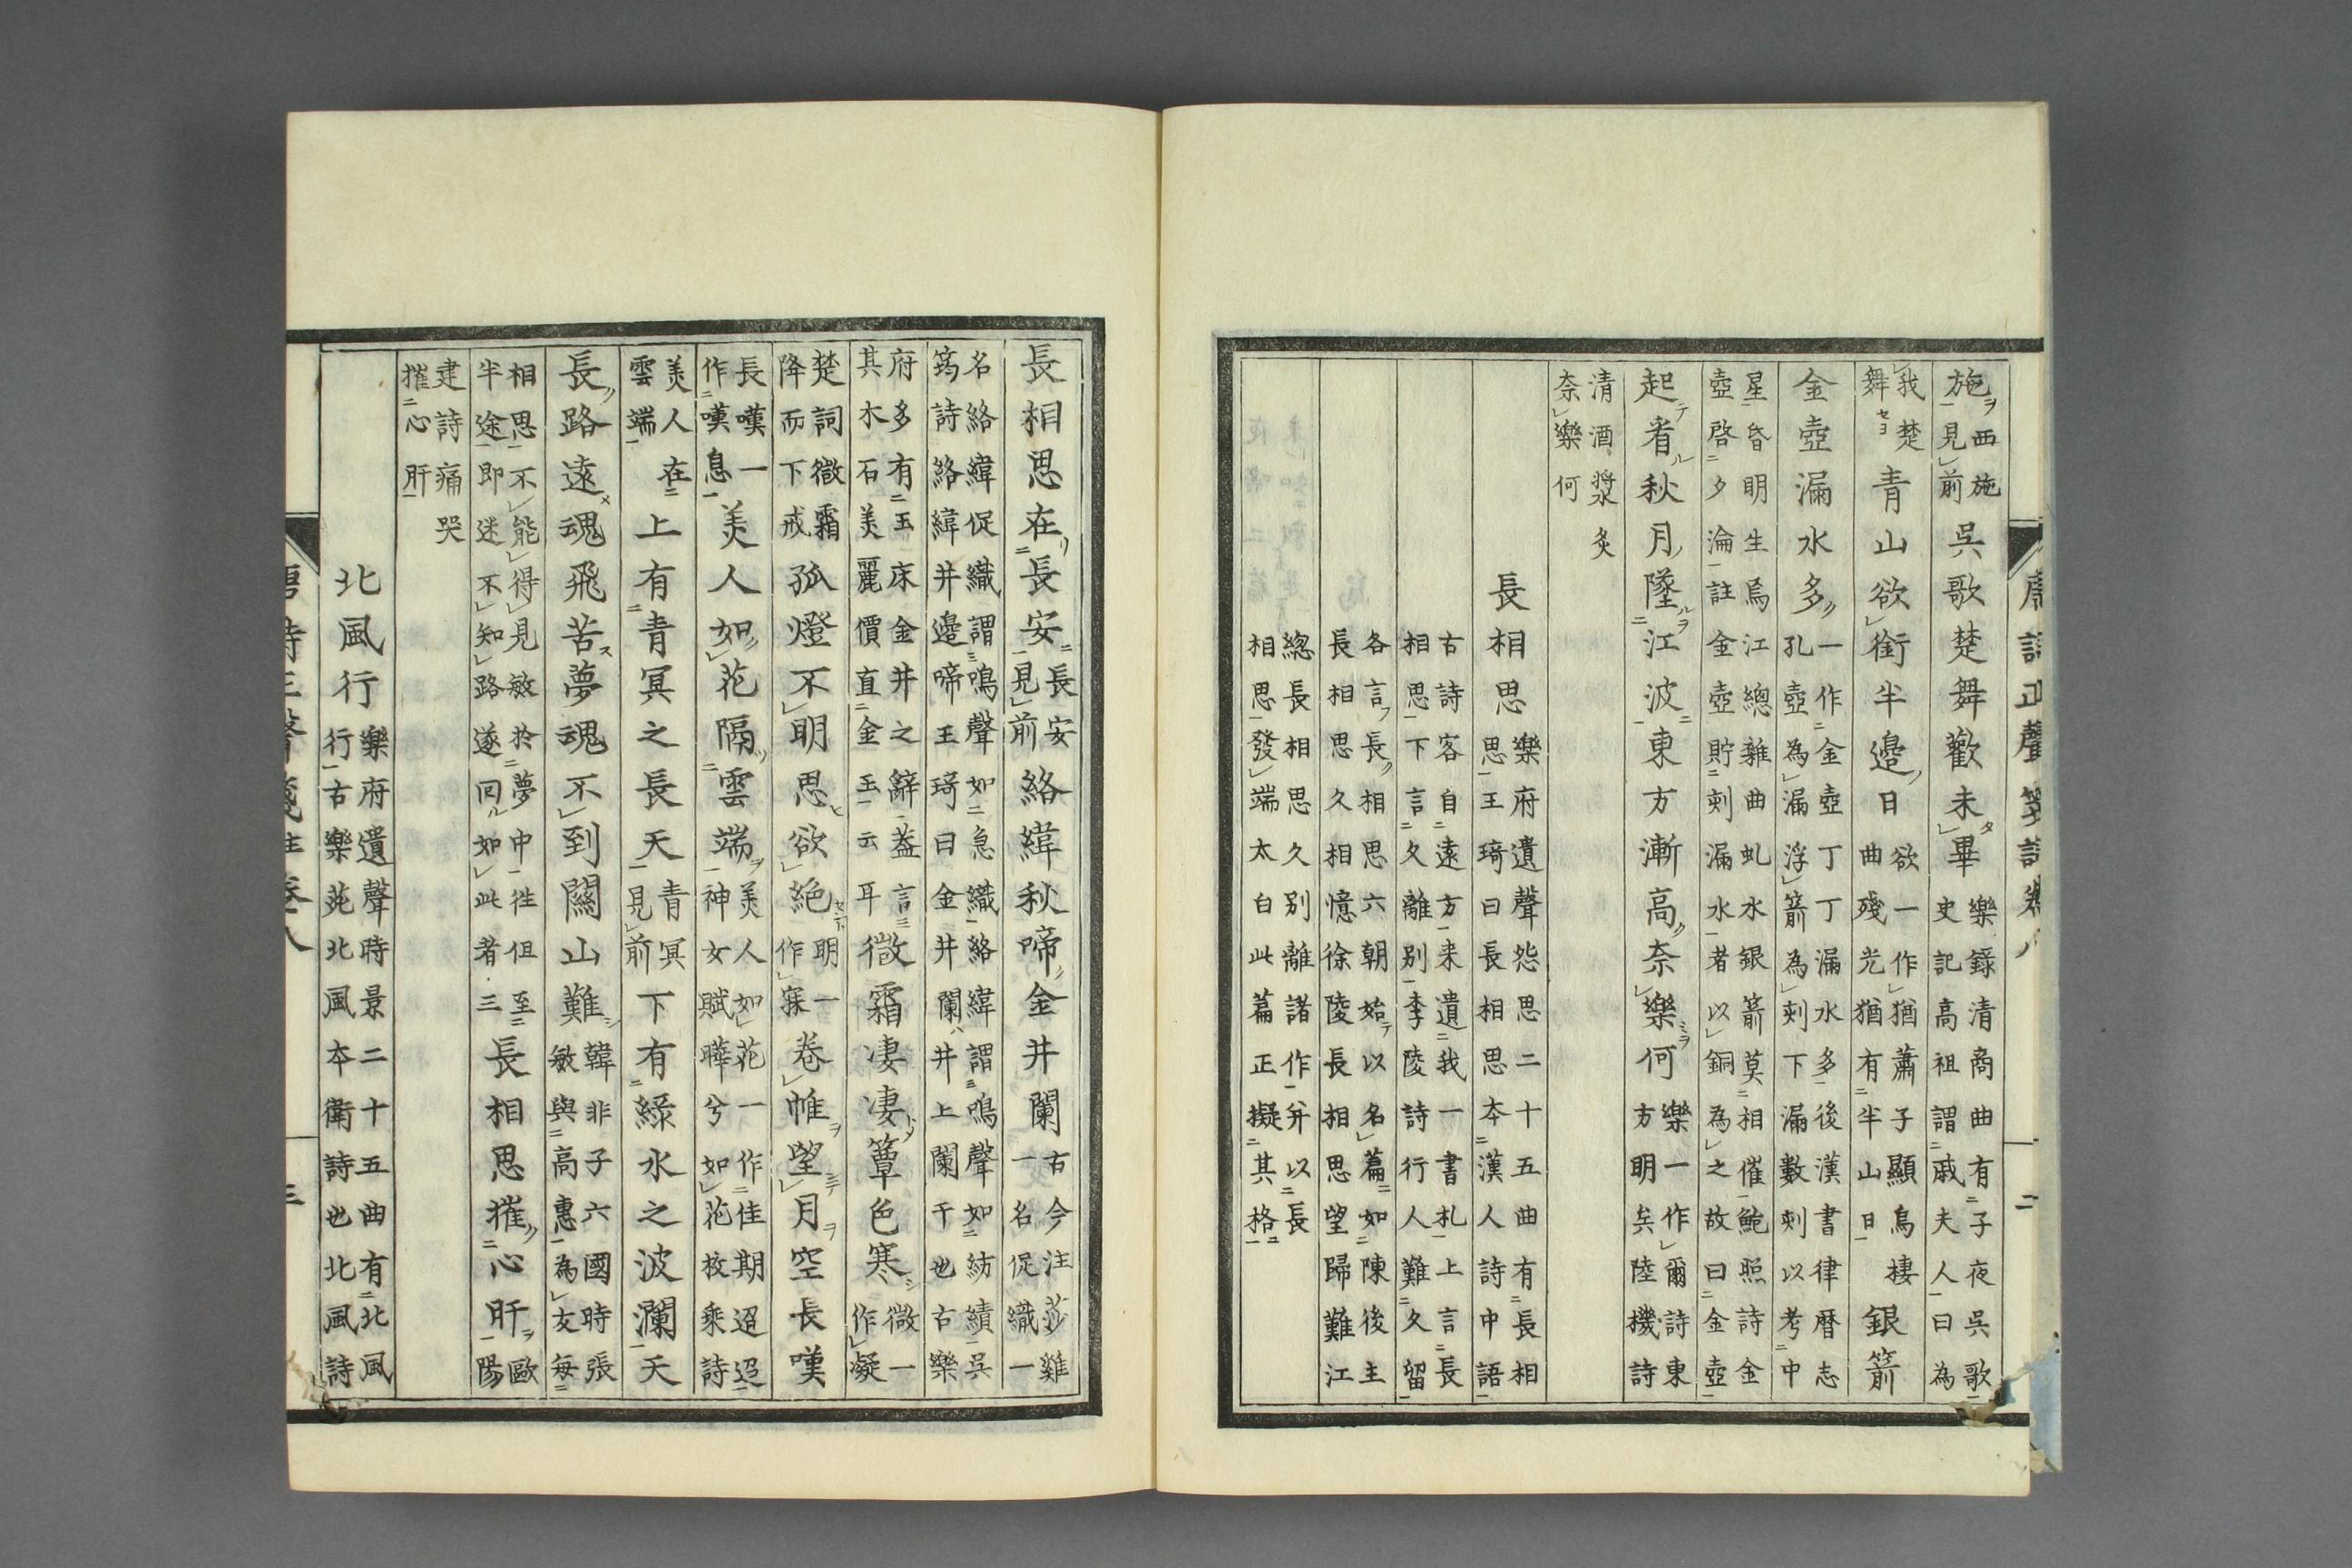 唐詩正聲箋註卷八 二
施西施
見前呉歌楚舞歡未畢樂錄清商曲有子夜呉歌
史記高祖謂戚夫人曰為
我楚
舞青山欲銜半邊日欲一作猶蕭子顯烏棲
曲殘光猶有半山日銀箭
金壺漏水多一作金壺丁丁漏水多後漢書律暦志
孔壺為漏浮箭為刻下漏數刻以考中
星昏明生焉江總雜曲虬水銀箭莫相催鮑照詩金
壺啓夕淪註金壺貯刻漏水者以銅為之故曰金壺
起看秋月墜江波東方漸高奈樂何樂一作爾詩東
方明矣陸機詩
清酒漿炙
奈樂何
長相思樂府遺聲怨思二十五曲有長相
思王琦曰長相思本漢人詩中語
古詩客自遠方来遺我一書札上言長
相思下言久離別李陵詩行人難久留
各言長相思六朝始以名篇如陳後主
長相思久相憶徐陵長相思望歸難江
總長相思久別離諸作并以長
相思發端太白此篇正擬其格
長相思在長安長安
見前絡緯秋啼金井闌古今注莎雞
一名促織一
名絡緯促織謂鳴聲如急織絡緯謂鳴聲如紡績呉
筠詩絡緯井邊啼王琦曰金井闌井上闌干也古樂
府多有玉床金井之辭葢言
其木石美麗價直金玉云耳微霜凄凄簟色寒微一
作凝
楚詞微霜
降而下戒孤燈不明思欲絶明一
作寐卷帷望月空長嘆
長嘆一
作嘆息美人如花隔雲端美人如花一作佳期迢迢
神女賦曄兮如花枚乘詩
美人在
雲端上有青冥之長天青冥
見前下有綠水之波瀾天
長路遠魂飛苦夢魂不到關山難韓非子六國時張
敏與高惠為友每
相思不能得見敏於夢中往但至
半途即迷不知路遂回如此者三長相思摧心肝歐
陽
建詩痛哭
摧心肝
北風行樂府遺聲時景二十五曲有北風
行古樂苑北風本衛詩也北風詩
唐詩正聲箋註卷八 三